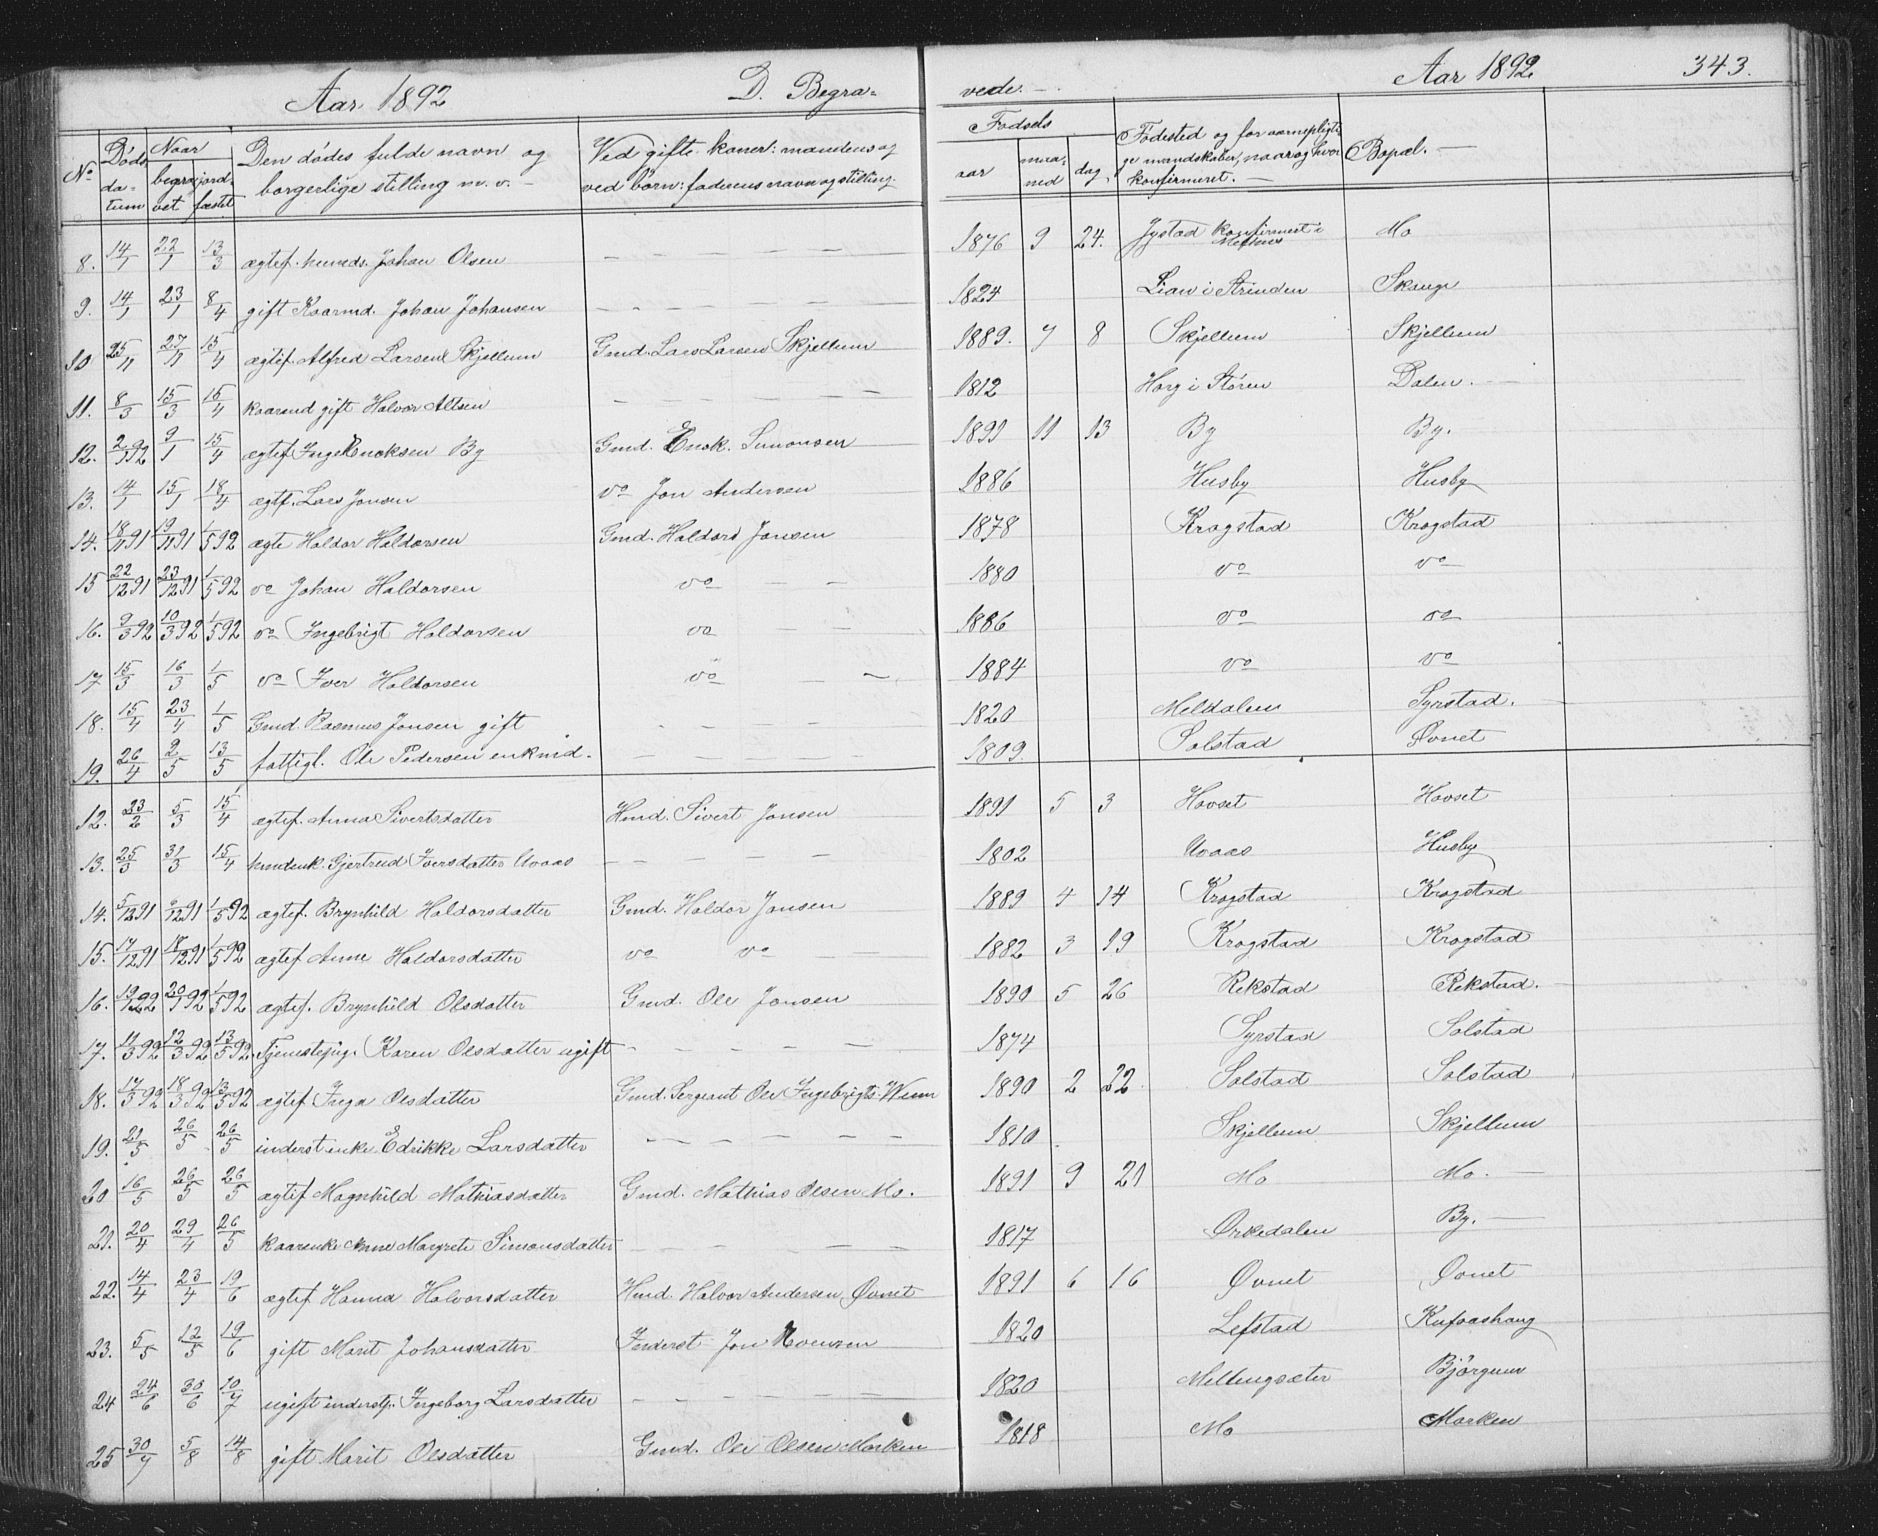 Aar 1892 D. Begra= vede. — Aar 1892 343.
No Døds da- tum Naar begra- vet jord- fæstet Den dødes fulde navn og borgerlige stilling m. v. — Ved gifte koner: mandens og ved børn: faderens navn og stilling. Fødsels aar maa- ned dag Fødested og forværnepligti- ge mandskaber, naar og hvor konfirmeret. — Bopæl. —
8. 14/1 22/1 13/3 ægtef. husmds. Johan Olsen — — — 1876 9 24. Jystad konfirmert i Melhus Mo
9. 14/1 23/1 8/4 gift Kaarmd. Johan Johansen — — — 1824 Lian i Strinden Skauge
10 25/11 27/11 15/4 ægtef. Alfred Larsen Skjellum Gmd. Lars Larsen Skjellum 1889. 7 8 Skjellum Skjellum
11. 8/3 15/3 15/4 kaarmd gift Halvor Altsen — — — 1812 Horg i Støren Dalen. —
12. 2/1 92 9/1 15/4 ægtef Inge Enoksen By Gmd. Enok. Simonsen 1891 11 13 By By.
13. 14/1 15/1 18/4 ægtf. Lars Jonsen do Jon Andersen 1886 Husby Husby
14. 18/11 91 19/11 91 1/5 92 ægte Haldor Haldorsen Gmd. Haldord Jonsen 1878 Krogstad Krogstad
15 22/12 91 23/12 91 1/5 92 do Johan Haldorsen do — — 1880 do do
16. 9/3 92 10/3 92 1/5 92 do Ingebrigt Haldorsen do — — 1886 do do
17 15/3 16/3 1/5 do Iver Haldorsen do — — 1884 do do
18. 15/4 23/4 1/5 Gmd. Rasmus Jonsen gift — — — 1820 Meldalen Syrstad. —
19. 26/4 2/5 13/5 fattigl. Ole Pedersen enkmd. — — — 1809. Solstad Øvnet
12. 23/2 5/3 15/4 ægtef. Anna Sivertsdatter Hmd. Sivert Jonsen 1891 5 3 Hovset Hovset
13. 25/3 31/3 15/4 husmdenk. Gjertrud Iversdatter Aaas — — — — 1802 Aaas Husby
14. 5/12 91 6/12 91 1/5 92 ægtef. Brynhild Haldorsdatter Gmd. Haldor Jonsen 1889 4 14 Krogstad Krogstad
15. 17/12 91 18/12 91 1/5 92 ægtef Anne Haldorsdatter do do — 1882 3 19 Krogstad Krogstad
16. 19/1 92 20/1 92 1/5 92 ægtef. Brynhild Olsdatter Gmd. Ole Jonsen 1890 5 26 Rekstad Rekstad. —
17. 11/3 92 12/3 92 13/5 92. Tjenestepig. Karen Olsdatter ugift — — — 1874 Syrstad Solstad
18. 17/3 92 18/3 92 13/5 92 ægtef Inga Olsdatter Gmd. Sergeant Ole Ingebrigts. Wum 1890 2 22 Solstad Solstad
19. 21/5 26/5 26/5 inderst enke Edrikke Larsdatter — — — 1810 Skjellum Skjellum
20 16/5 26/5 26/5 ægtef Magnhild Mathiasdatter Gmd. Mathias Olsen Mo. 1891 9 21 Mo Mo. —
21. 20/4 29/4 26/5 kaarenke Anne Margrete Simonsdatter — — — 1817 Orkedalen By. —
22. 14/4 23/4 19/6 ægtef Hanna Halvorsdatter Hmd. Halvor Andersen Øvnet 1891 6 16 Øvnet Øvnet
23. 5/5 12/5 19/6 gift Marit Johansdatter Inderst Jon 1820 Lefstad Kufaashaug
24 24/6 30/6 10/7 ugift inderstp. Ingeborg Larsdatter — — — 1820 Mellingsæter Bjørgum
25 30/7 5/8 14/8 gift Marit Olsdatter Gmd. Ole Olsen Morken 1818 Mo Morken